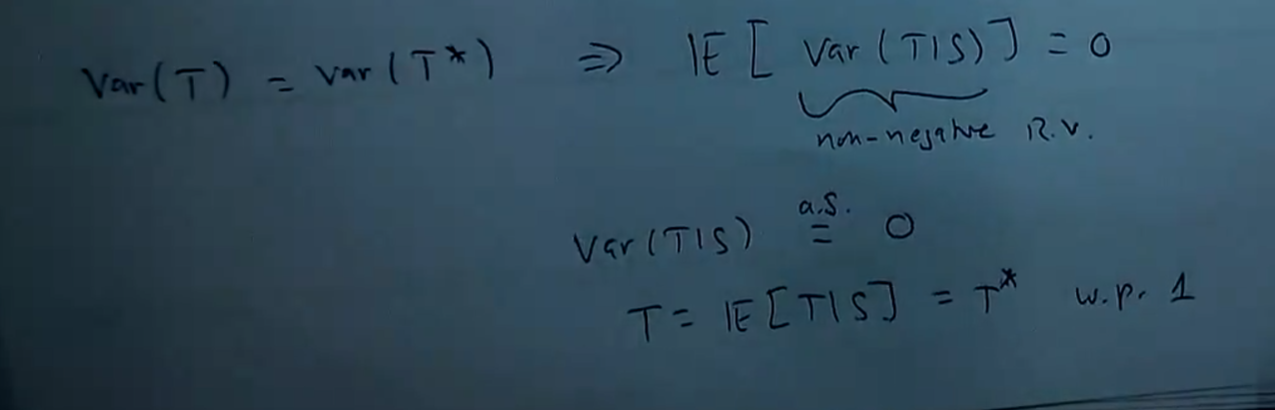 Var(T) = Var(T*) ⇒ 𝔼[Var(T|S)] = 0
non-negative R.V.
Var(T|S) a.s.= 0
T = 𝔼[T|S] = T* w.p. 1